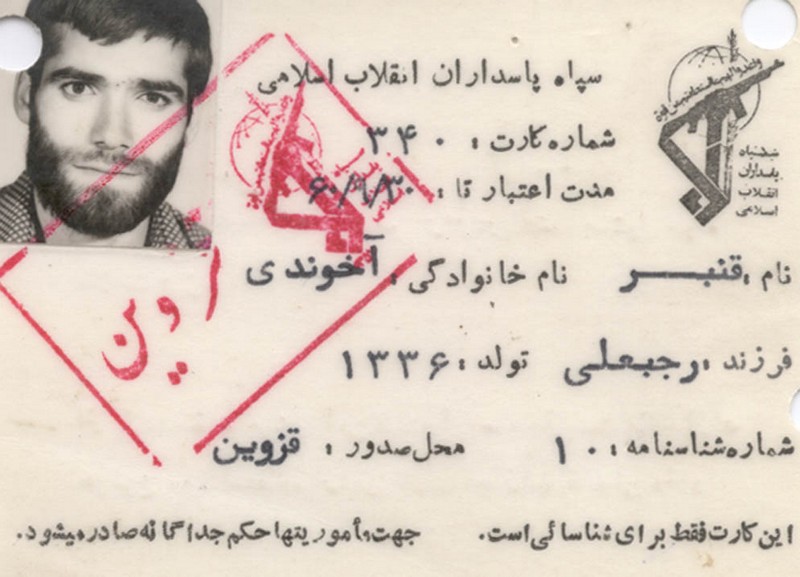 سپاه پاسداران انقلاب اسلامی
شماره کارت : ۳۴۰
مدت اعتبار تا :
سپاه
پاسداران
انقلاب
اسلامی
نام : قنبر نام خانوادگی : آخوندی
اوین
فرزند : رجبعلی تولد : ۱۳۳۶
شماره شناسنامه : ۱۰ محل صدور : قزوین
این کارت فقط برای شناسائی است. جهت مأموریتها حکم جداگانه صادر میشود.